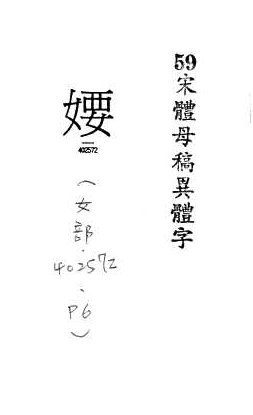 59宋體母稿異體字
402572
(女部.402572、P6)